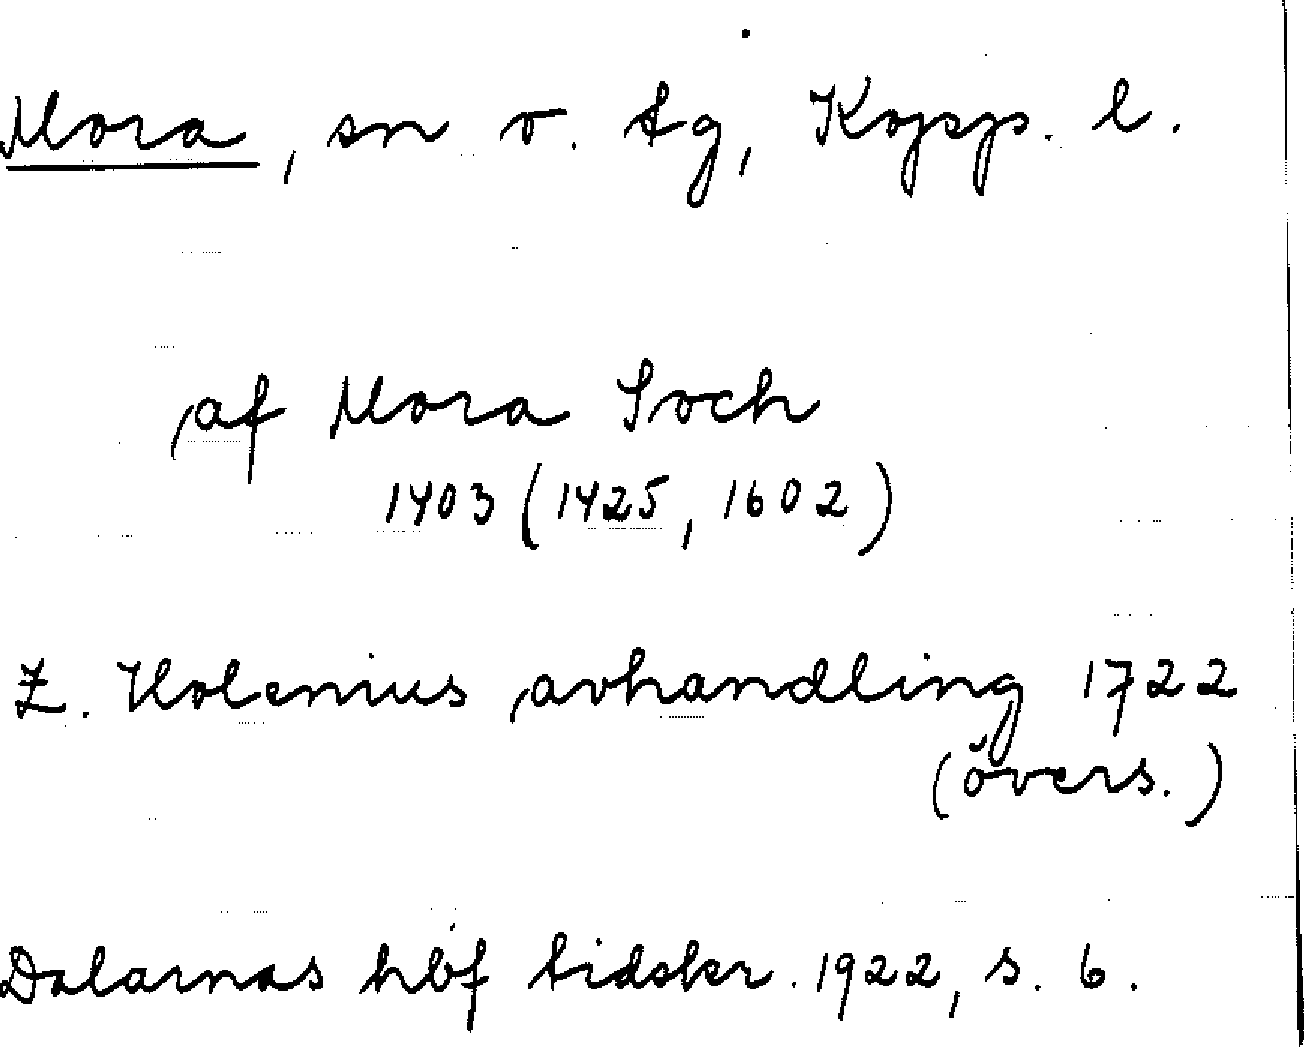 Mora, sn o. tg, Kopp. l.
af Mora Soch
1403 (1425, 1602)
Z. Holenius avhandling 1722
(övers.)
Dalarnas hbf tidskr. 1922, s. 6.